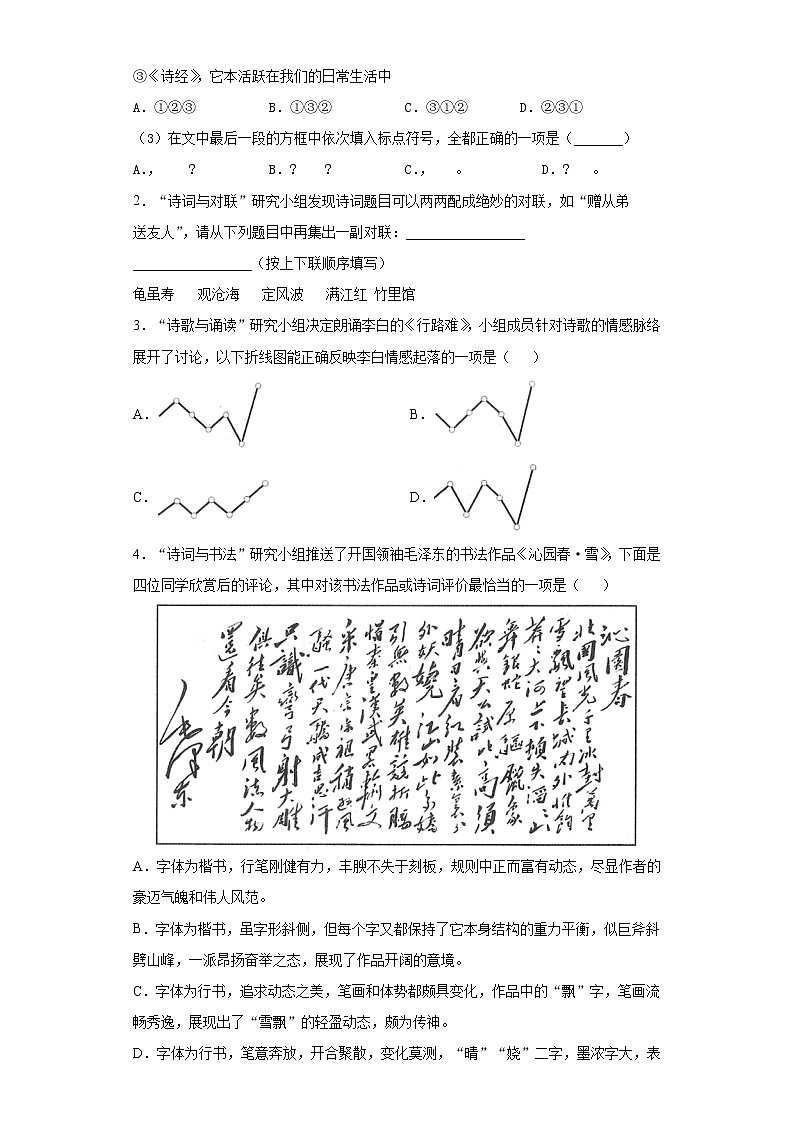 ③《诗经》，它本活跃在我们的日常生活中
A. ①②③ B. ①③② C. ③①② D. ②③①
（3）在文中最后一段的方框中依次填入标点符号，全都正确的一项是（______）
A.， ？ B.？ ？ C.， 。 D.？ 。
2．“诗词与对联”研究小组发现诗词题目可以两两配成绝妙的对联，如“赠从弟
送友人”，请从下列题目中再集出一副对联：_______________
_______________（按上下联顺序填写）
龟虽寿 观沧海 定风波 满江红 竹里馆
3．“诗歌与诵读”研究小组决定朗诵李白的《行路难》，小组成员针对诗歌的情感脉络
展开了讨论，以下折线图能正确反映李白情感起落的一项是（ ）
A. B.
C. D.
4．“诗词与书法”研究小组推送了开国领袖毛泽东的书法作品《沁园春·雪》，下面是
四位同学欣赏后的评论，其中对该书法作品或诗词评价最恰当的一项是（ ）
沁园春
北国风光千里冰封万里
雪飘望长城内外惟余
莽莽大河上下顿失滔滔山
舞银蛇原驰蜡象
欲与天公试比高须
晴日看红装素裹分
外妖娆江山如此多娇
引无数英雄竞折腰
惜秦皇汉武略输文
采唐宗宋祖稍逊风
骚一代天骄成吉思汗
只识弯弓射大雕
俱往矣数风流人物
还看今朝
毛泽东
A．字体为楷书，行笔刚健有力，丰腴不失于刻板，规则中正而富有动态，尽显作者的
豪迈气魄和伟人风范。
B．字体为楷书，虽字形斜侧，但每个字又都保持了它本身结构的重力平衡，似巨斧斜
劈山峰，一派昂扬奋举之态，展现了作品开阔的意境。
C．字体为行书，追求动态之美，笔画和体势都颇具变化，作品中的“飘”字，笔画流
畅秀逸，展现出了“雪飘”的轻盈动态，颇为传神。
D．字体为行书，笔意奔放，开合聚散，变化莫测，“晴”“娆”二字，墨浓字大，表